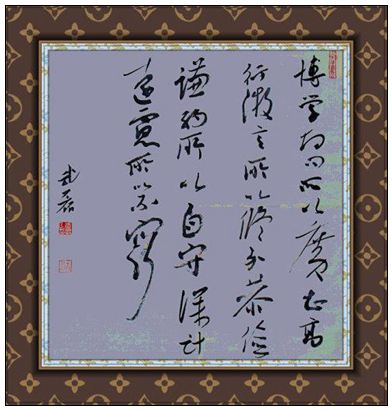 博学切问所以廣知高
行微言所以修身恭俭
谦约所以自守深计
远慮所以不窮